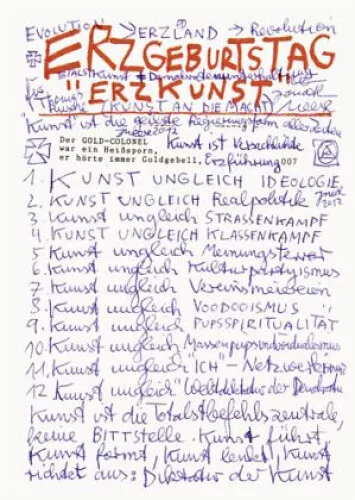 EVOLUTION → ERZLAND → Revolution
ERZGEBURTSTAG
"ERZKUNST"
KUNST AN DIE MACHT
"Kunst" ist die geilste Regierungsform
Der GOLD-COLONEL Kunst ist Chefsache
war ein Heißsporn,
er hörte immer Goldgebell, Erzführung 007
1. KUNST UNGLEICH IDEOLOGIE
2. KUNST UNGLEICH Realpolitik
3. Kunst ungleich STRASSENKAMPF
4. KUNST UNGLEICH KLASSENKAMPF
5. Kunst ungleich Meinungsterror
6. Kunst ungleich Kulturpartyismus
7 Kunst ungleich Vereinsmeiereien
8. Kunst ungleich VOODOOISMUS
9. Kunst ungleich PUPSSPIRITUALITÄT
10. Kunst ungleich Massenpupsindividualismus
11. Kunst ungleich "ICH" - Netzwerke
12 Kunst ungleich Weltdiktatur der Demokratie
Kunst ist die Totalstbefehlszentrale,
keine BITTSTELLE. Kunst führt,
Kunst formt, Kunst lenkt, Kunst
richtet aus: Diktatur der Kunst